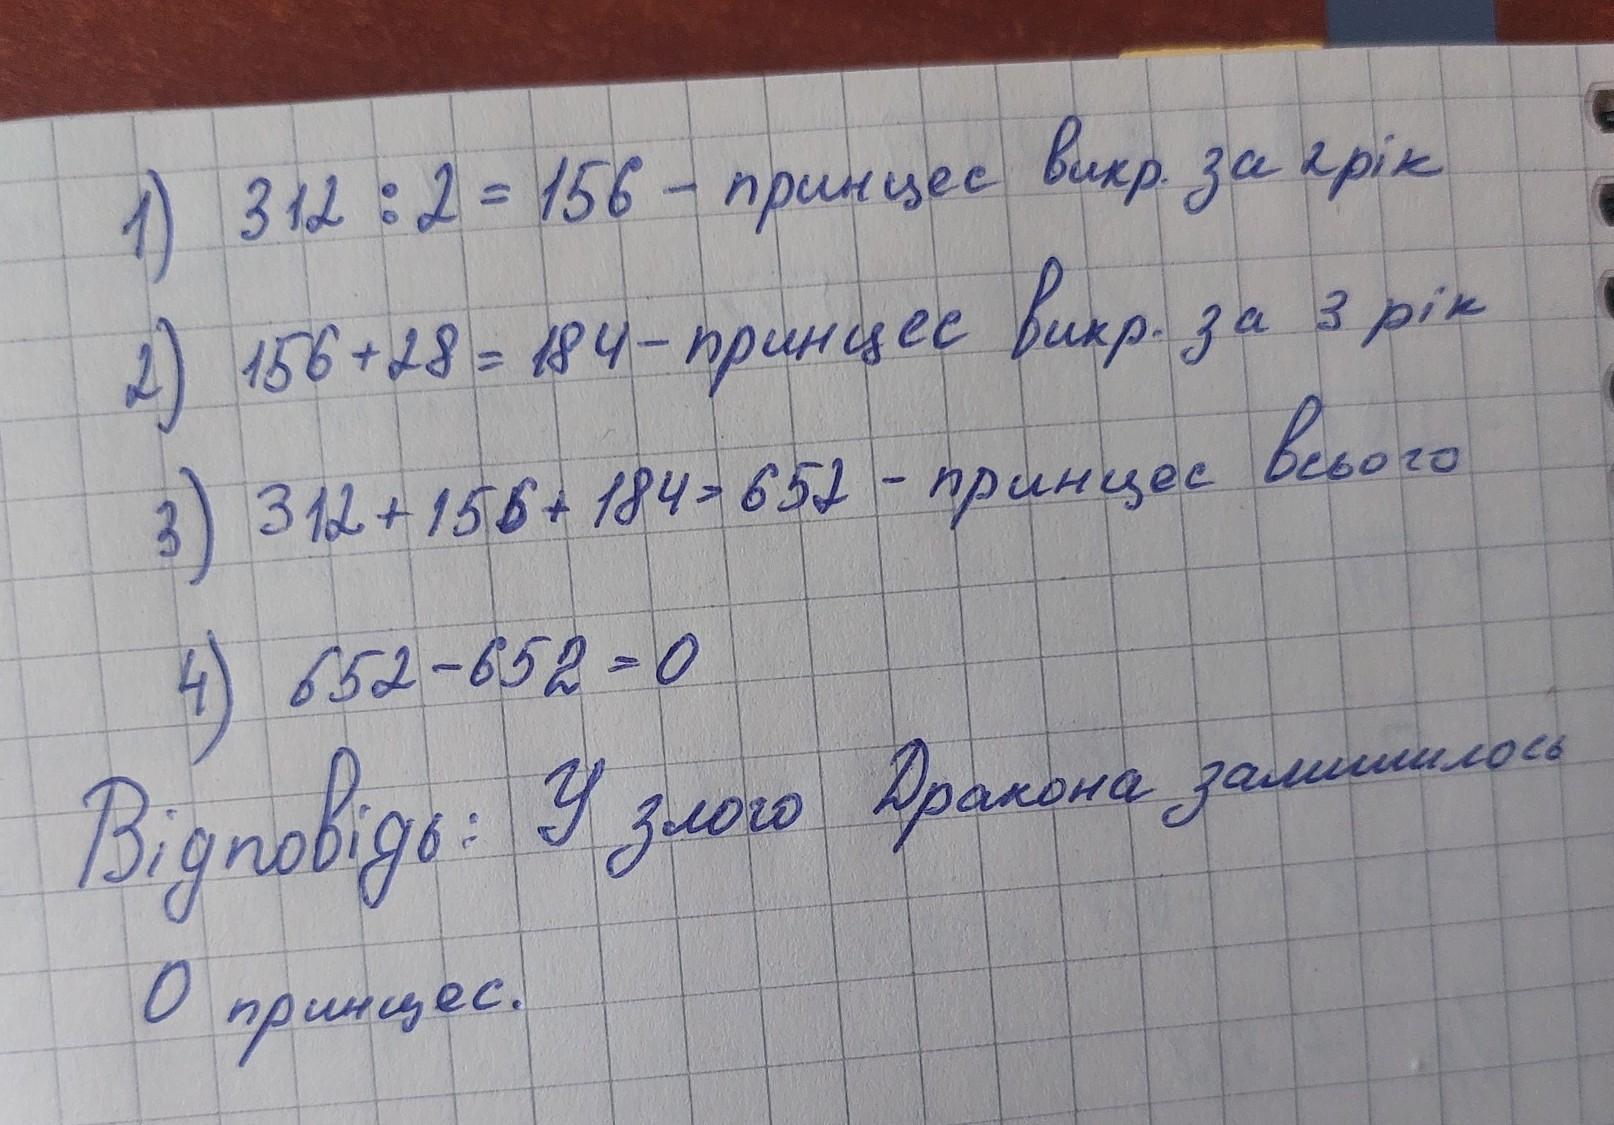 1) 312 : 2 = 156 - принцес викр. за 2 рік
2) 156 + 28 = 184 - принцес викр. за 3 рік
3) 312 + 156 + 184 = 652 - принцес всього
4) 652 - 652 = 0
Відповідь: У злого Дракона залишилось
0 принцес.